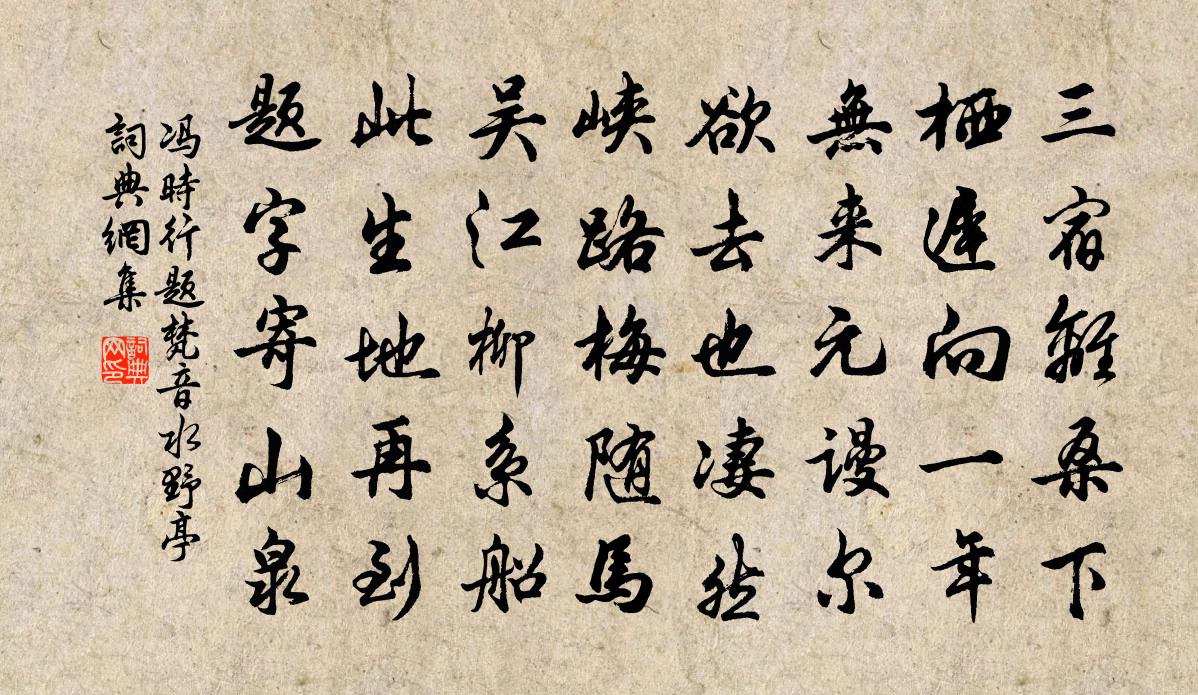 三宿離桑下
栖遲向一年
無来元謾尔
欲去也凄然
峽路梅随馬
吴江柳系船
此生地再到
题字寄山泉
冯時行题梵音水野亭
詞典網集
詞典网印